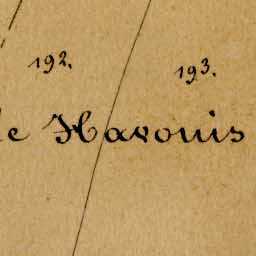 192. 193.
le Harouis